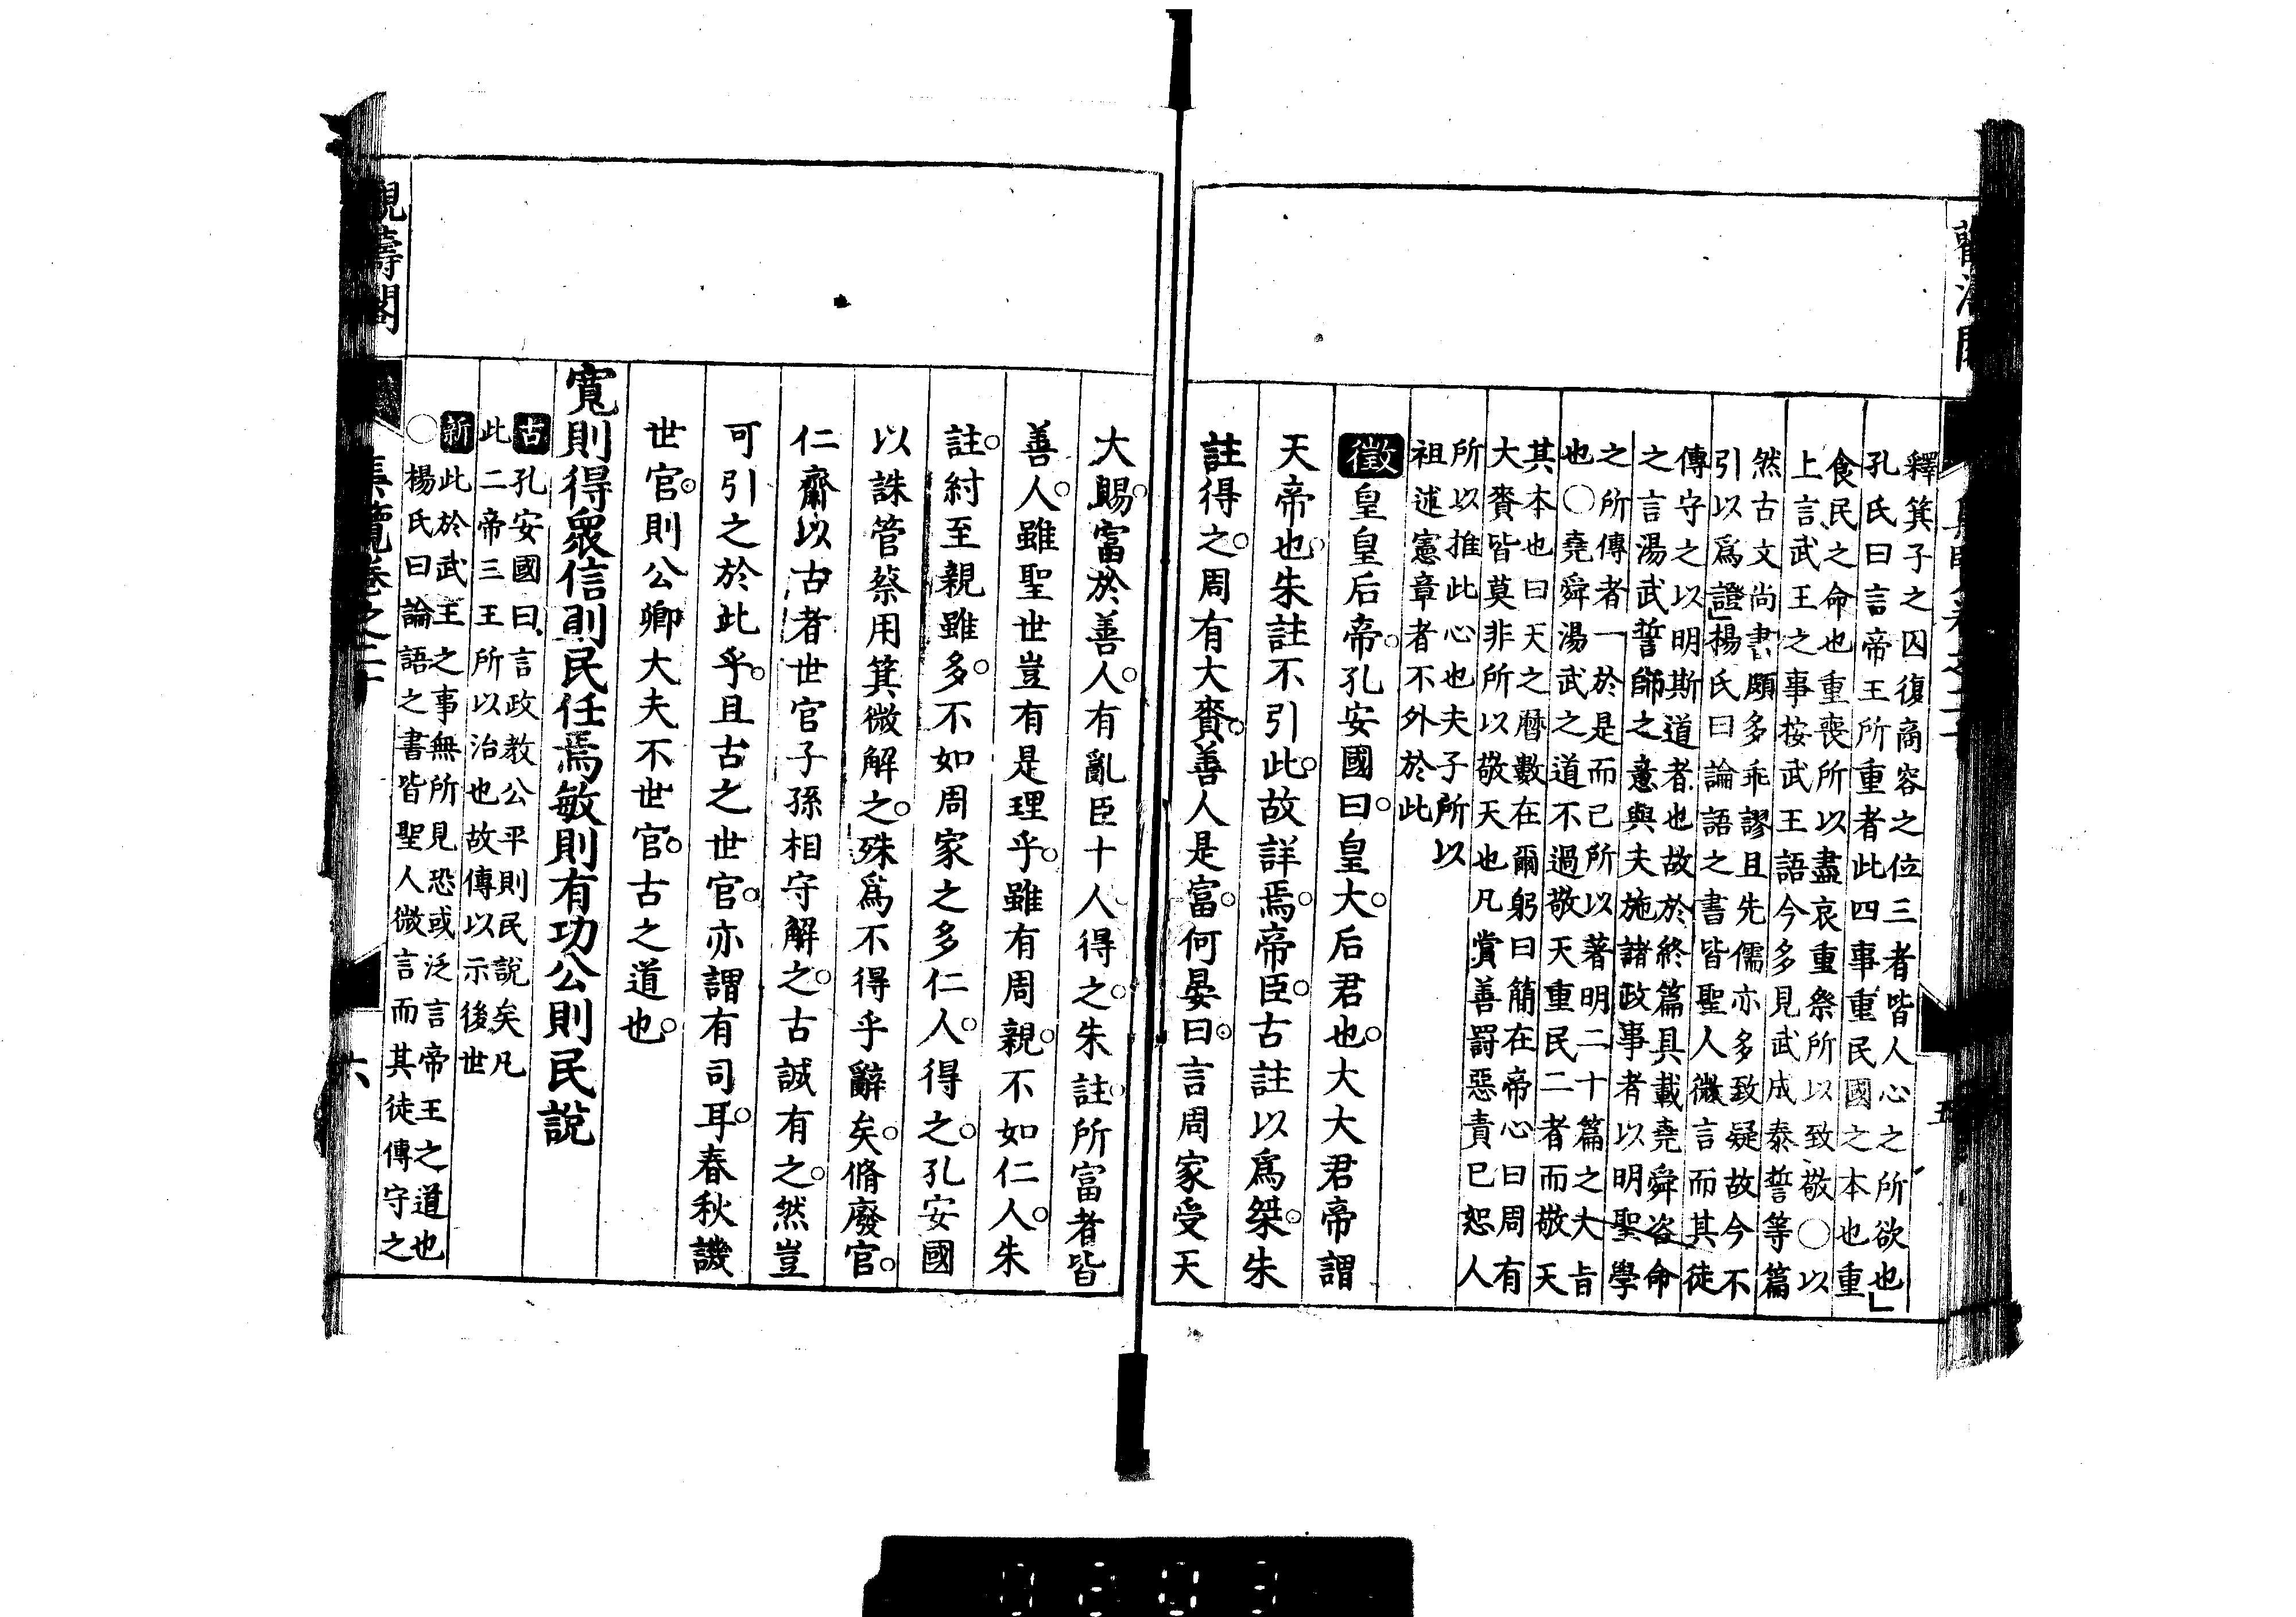 釋箕子之囚復商容之位三者皆人心之所欲也」
孔氏曰言帝王所重者此四事重民國之本也重
食民之命也重喪所以盡哀重祭所以致敬○以
上言武王之事按武王語今多見武成泰誓等篇
然古文尚書頗多乖謬且先儒亦多致疑故今不
引以爲證」楊氏曰論語之書皆聖人微言而其徒
傳守之以明斯道者也故於終篇具載堯舜咨命
之言湯武誓師之意與夫施諸政事者以明聖學
之所傳者一於是而已所以著明二十篇之大旨
也○堯舜湯武之道不過敬天重民二者而敬天
其本也曰天之曆數在爾躬曰簡在帝心曰周有
大賚皆莫非所以敬天也凡賞善罰惡責已恕人
所以推此心也夫子所以
祖述憲章者不外於此
徵皇皇后帝孔安國曰皇大后君也大大君帝謂
天帝也朱註不引此故詳焉帝臣古註以爲桀朱
註得之周有大賚善人是富何晏曰言周家受天
大賜富於善人有亂臣十人得之朱註所富者皆
善人雖聖世豈有是理乎雖有周親不如仁人朱
註紂至親雖多不如周家之多仁人得之孔安國
以誅管蔡用箕微解之殊爲不得乎辭矣脩廢官
仁齋以古者世官子孫相守解之古誠有之然豈
可引之於此乎且古之世官亦謂有司耳春秋譏
世官則公卿大夫不世官古之道也
寬則得眾信則民任焉敏則有功公則民說
古孔安國曰言政教公平則民說矣凡
此二帝三王所以治也故傳以示後世
新此於武王之事無所見恐或泛言帝王之道也
○楊氏曰論語之書皆聖人微言而其徒傳守之
覽卷之二十
六